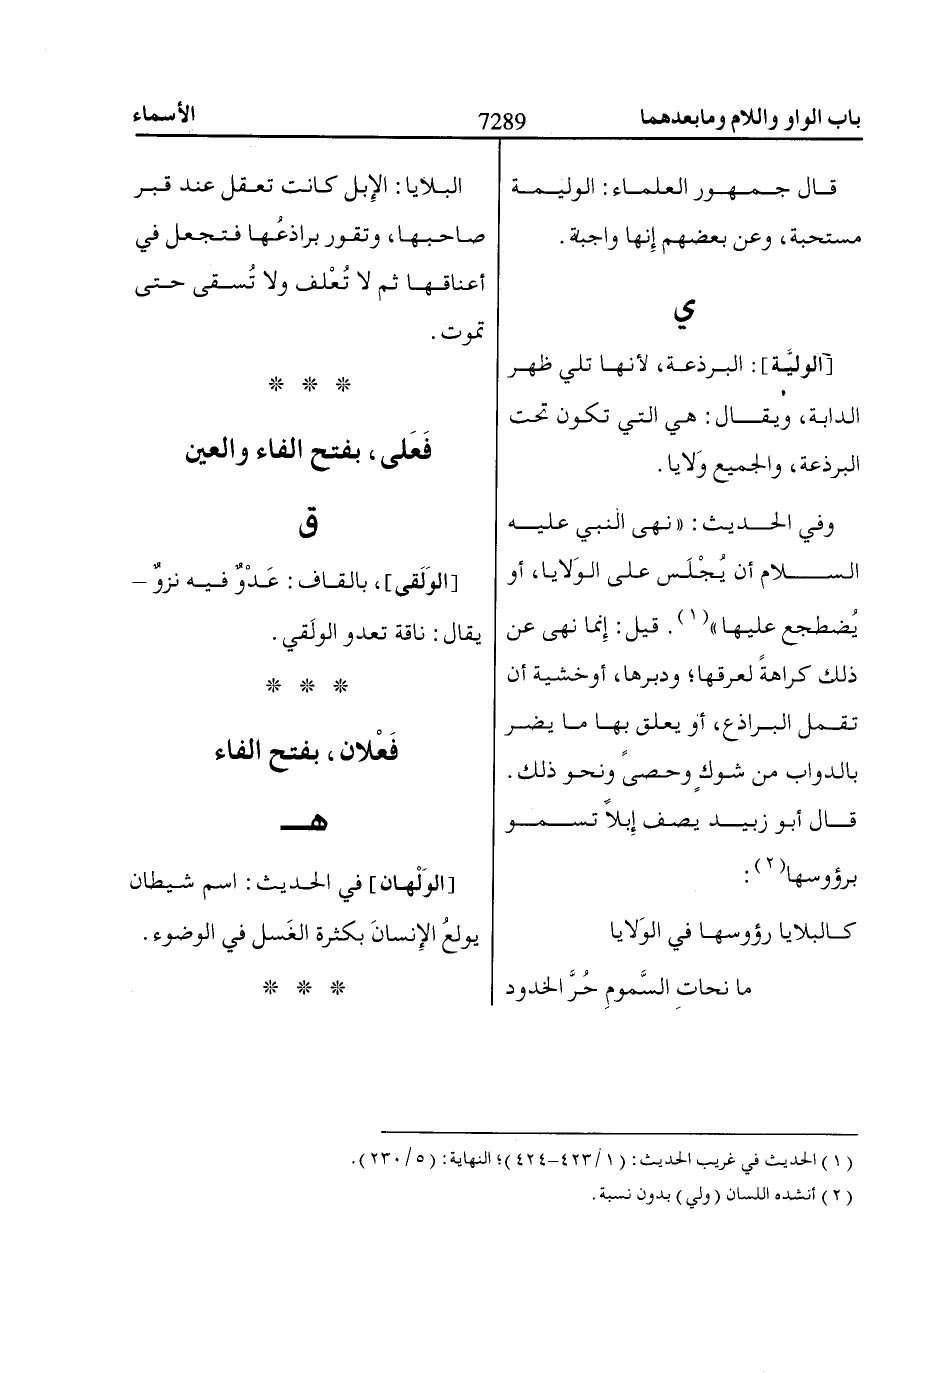 باب الواو واللام ومابعدهما 7289 الأسماء
قال جمهور العلماء: الوليمة
مستحبة، وعن بعضهم إنها واجبة.
ي
[الوليَّة]: البرذعة، لأنها تلي ظهر
الدابة، ويقال: هي التي تكون تحت
البرذعة، والجميع وَلايا.
وفي الحديث: «نهى النبي عليه
السلام أن يُجْلَس على الوَلايا، أو
يُضطجع عليها»(١). قيل: إنما نهى عن
ذلك كراهةً لعرقها؛ ودبرها، أوخشية أن
تقمل البراذع، أو يعلق بها ما يضر
بالدواب من شوكٍ وحصىً ونحو ذلك.
قال أبو زبيد يصف إبلاً تسمو
برؤوسها(٢):
كالبلايا رؤوسها في الوَلايا
ما نحاتِ السَّمومِ حُرَّ الخدود
البلايا: الإبل كانت تعقل عند قبر
صاحبها، وتقور براذعُها فتجعل في
أعناقها ثم لا تُعْلف ولا تُسقى حتى
تموت.
* * *
فَعَلى، بفتح الفاء والعين
ق
[الوَلَقى]، بالقاف: عَدْوٌ فيه نزوٌ –
يقال: ناقة تعدو الولَقي.
* * *
فَعْلان، بفتح الفاء
هـ
[الوَلْهان] في الحديث: اسم شيطان
يولعُ الإنسانَ بكثرة الغَسل في الوضوء.
* * *
(١) الحديث في غريب الحديث: (١/ ٤٢٣–٤٢٤)؛ النهاية: (٥/ ٢٣٠).
(٢) أنشده اللسان (ولي) بدون نسبة.